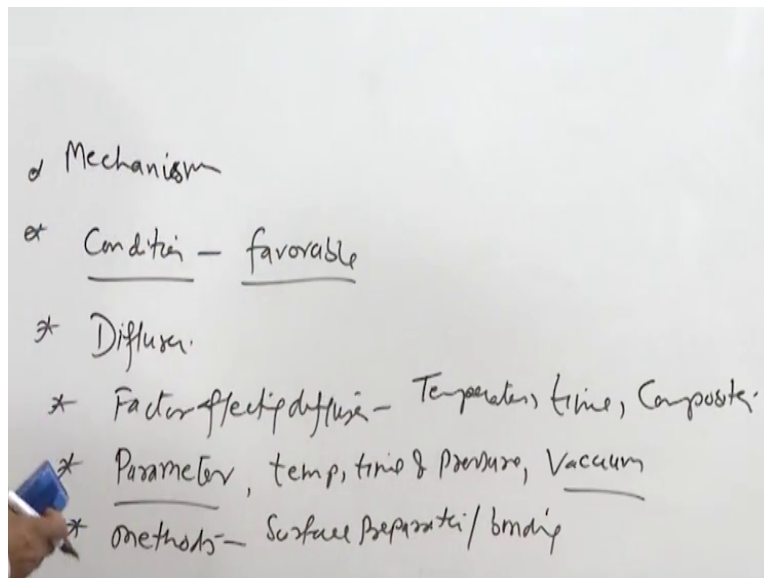 * Mechanism
* Condition – favorable
* Diffusion.
* Factor affecting diffusion – Temperature, time, Composition
* Parameter, temp, time & pressure, Vacuum
* methods – Surface Preparation / bonding